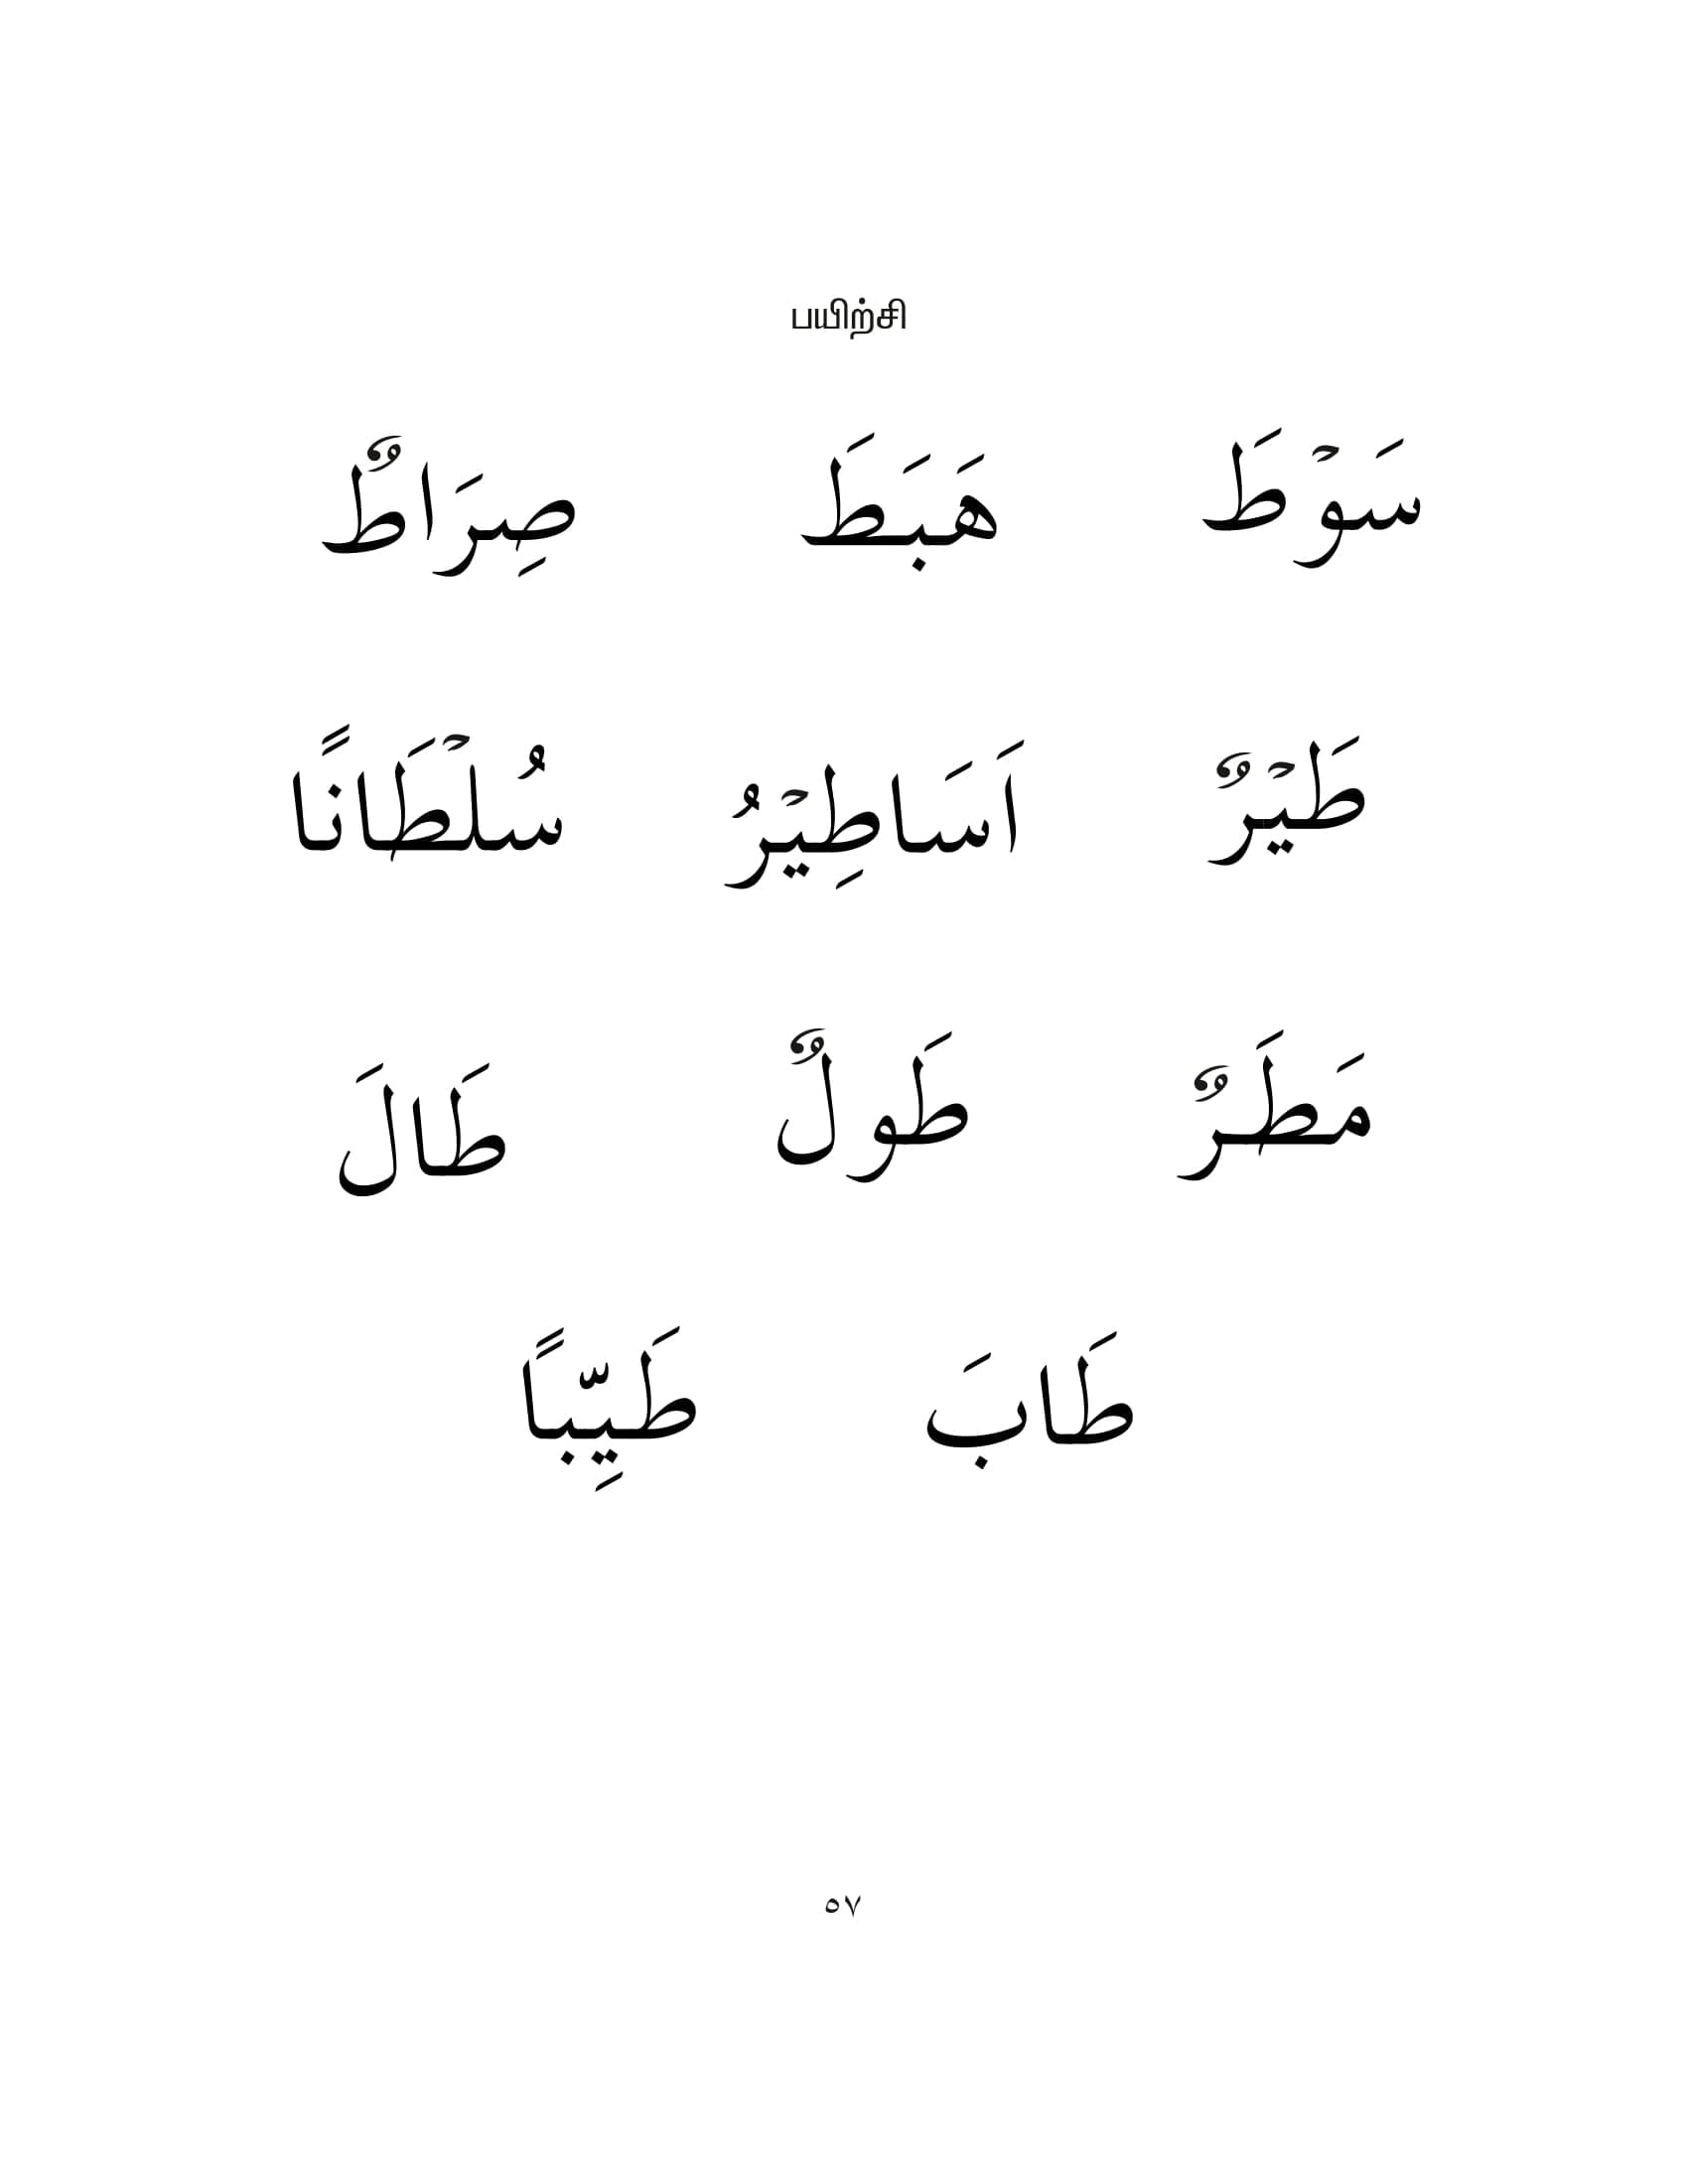 பயிற்சி
سَوْطَ هَبَطَ صِرَاطٌ
طَيْرٌ اَسَاطِيْرُ سُلْطَانًا
مَطَرٌ طَولٌ طَالَ
طَابَ طَيِّبًا
٥٧